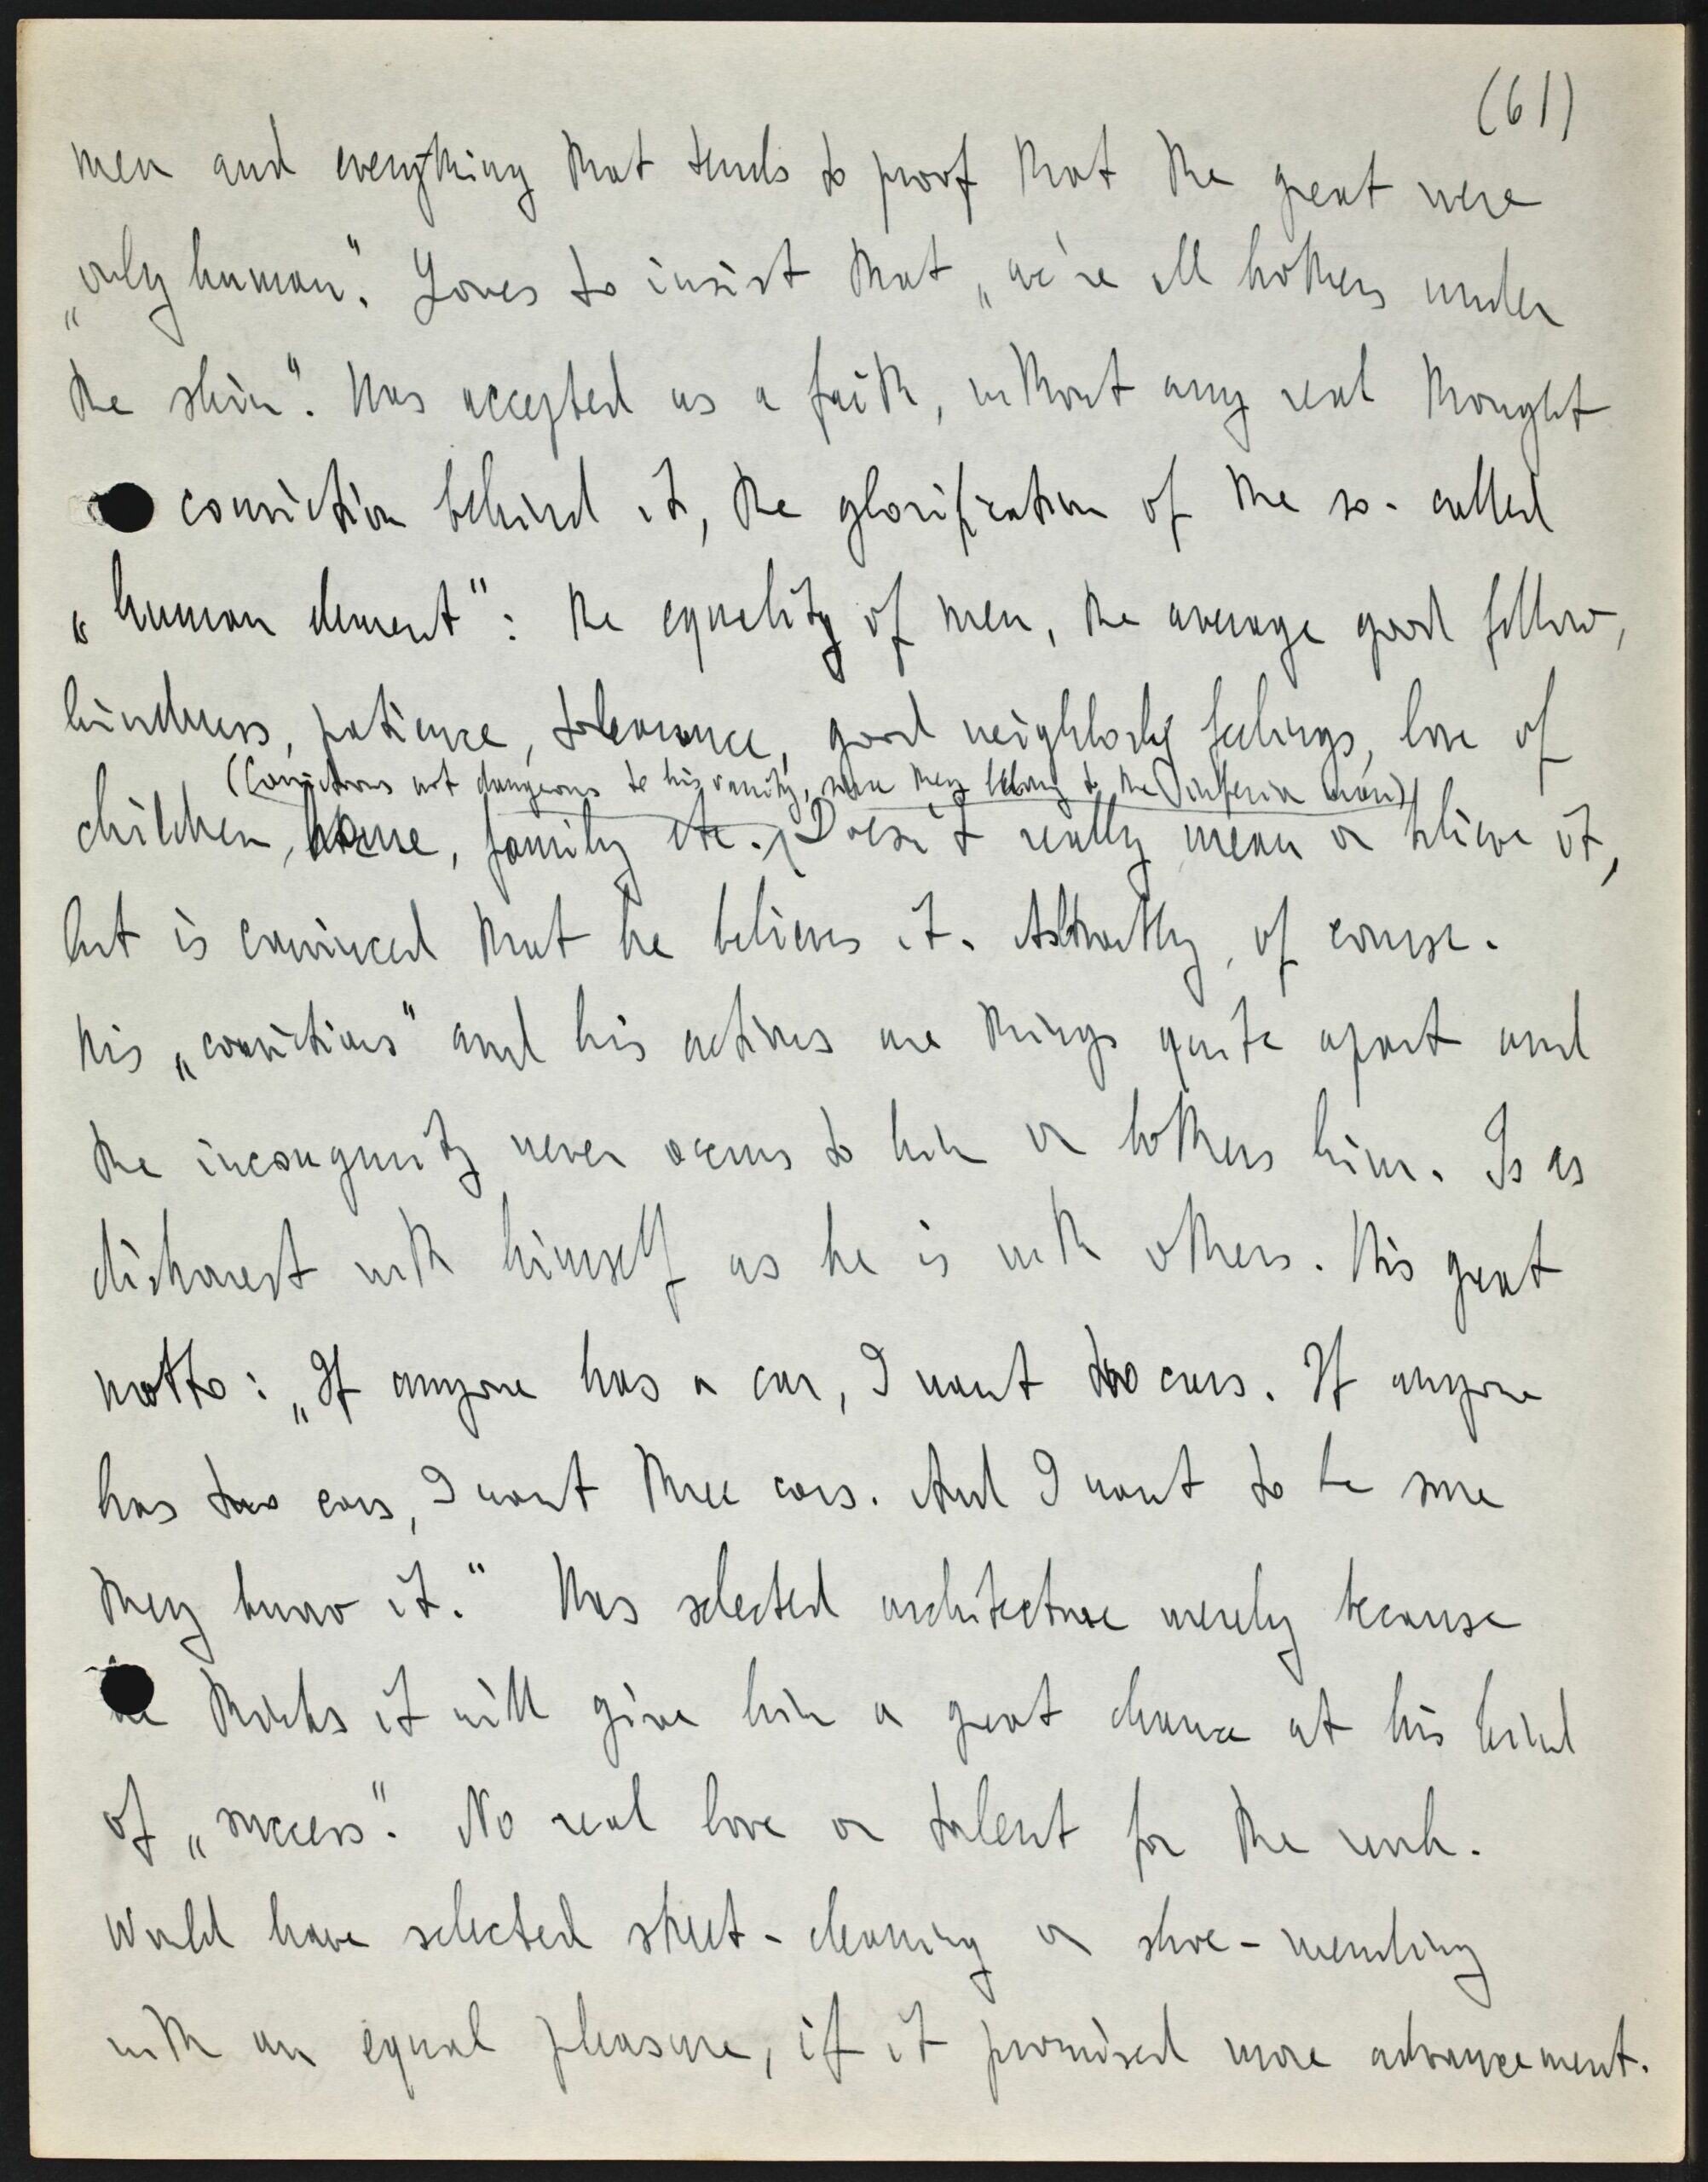 (61)
men and everything that tends to proof that the great were
„only human". Loves to insist that „we're all brothers under
the skin". Has accepted as a faith, without any real thought
conviction behind it, the glorification of the so-called
„human element": the equality of men, the average good fellow,
kindness, patience, tolerance, good neighborly feelings, love of
(Convictions not dangerous to his vanity, since they belong to the inferior man)
children, home, family etc. Doesn't really mean or believe it,
but is convinced that he believes it. Abstractly, of course.
His „convictions" and his actions are things quite apart and
the incongruity never occurs to him or bothers him. Is as
dishonest with himself as he is with others. His great
motto: „If anyone has a car, I want two cars. If anyone
has two cars, I want three cars. And I want to be sure
they know it." Has selected architecture merely because
he thinks it will give him a great chance at his kind
of „success". No real love or talent for the work.
Would have selected street-cleaning or shoe-mending
with an equal pleasure, if it promised more advancement.